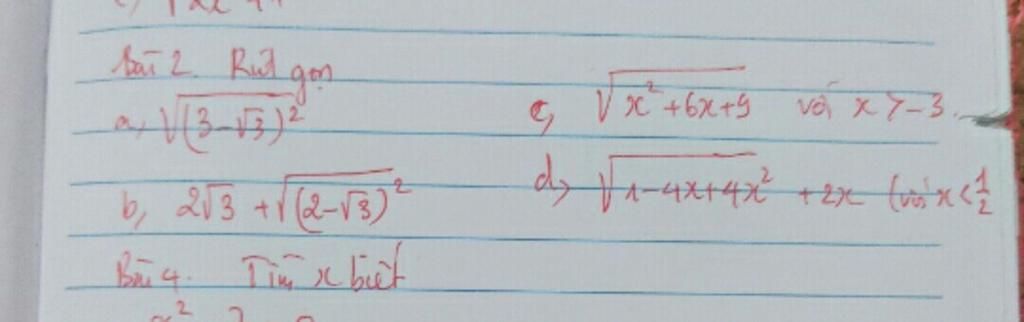 Bài 2. Rút gọn
a, √(3-√3)²
c, √x²+6x+9 với x > -3.
b, 2√3 + √(2-√3)²
d, √1-4x+4x² + 2x (với x < 1/2
Bài 4. Tìm x biết